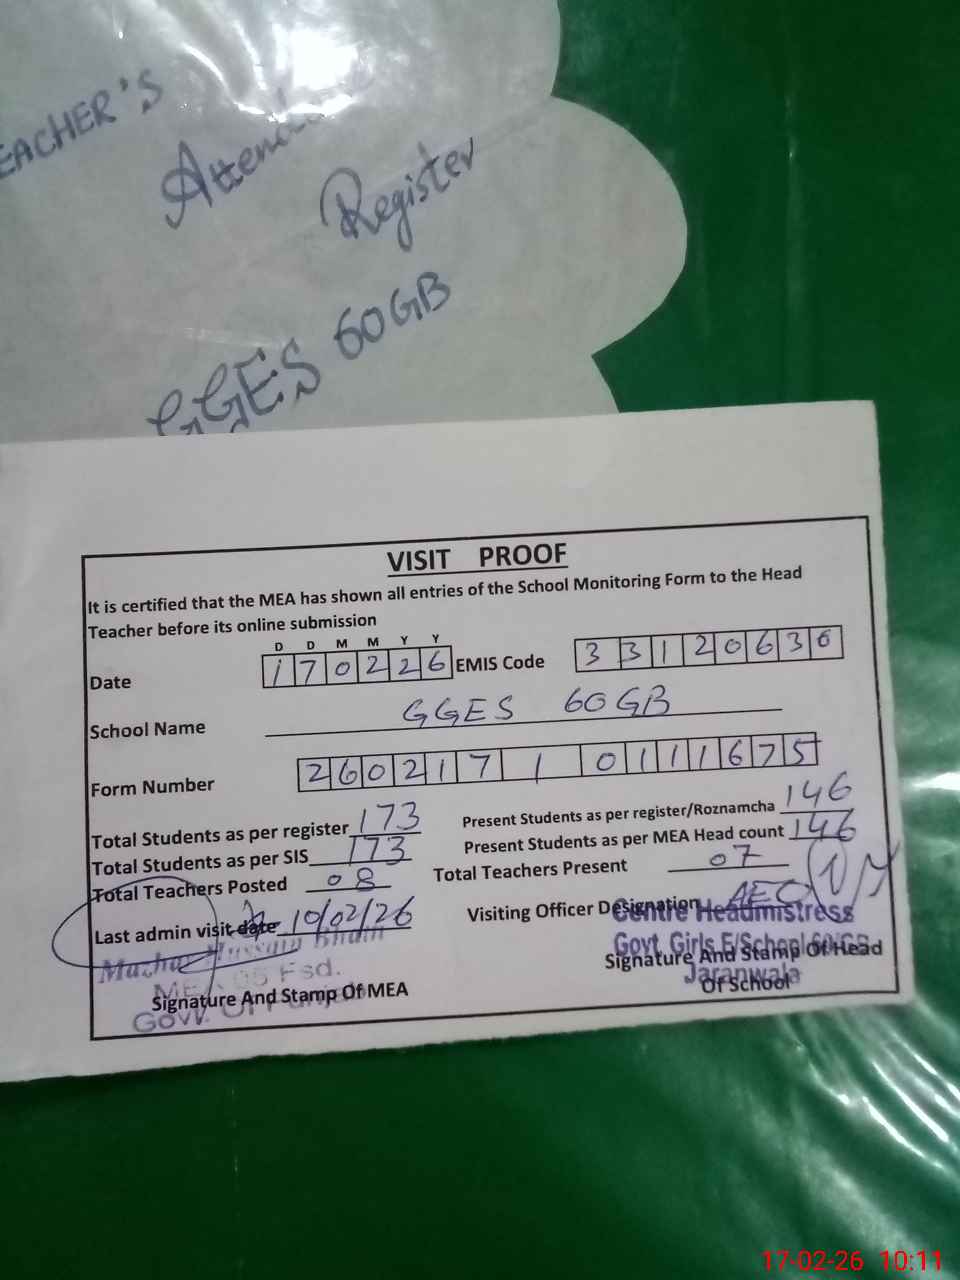 TEACHER'S
Register
GGES 60GB
VISIT PROOF
It is certified that the MEA has shown all entries of the School Monitoring Form to the Head
Teacher before its online submission
D D M M Y Y
Date 170226 EMIS Code 33120630
School Name GGES 60GB
Form Number 260217 1 0111675
Total Students as per register 173 Present Students as per register/Roznamcha 146
Total Students as per SIS 173 Present Students as per MEA Head count 146
Total Teachers Posted 08 Total Teachers Present 07
Last admin visit date 10/02/26 Visiting Officer Designation AEO
Centre Headmistress
Govt. Girls E/School 60/GB
Jaranwala
Signature And Stamp Of Head
Of School
Hussain
Signature And Stamp Of MEA
17-02-26 10:11